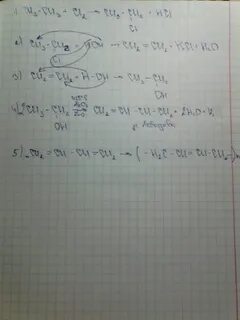 1) CH₃-CH₃ + Cl₂ → CH₃-CH₂ + HCl
Cl
2) CH₃-CH₂ + KOH → CH₂=CH₂ + KCl + H₂O
Cl
3) CH₂=CH₂ + H-OH → CH₃-CH₂
OH
4) 2CH₃-CH₂ → CH₂=CH-CH=CH₂ + 2H₂O + H₂
OH
5) nCH₂=CH-CH=CH₂ → (-H₂C-CH=CH-CH₂-)n